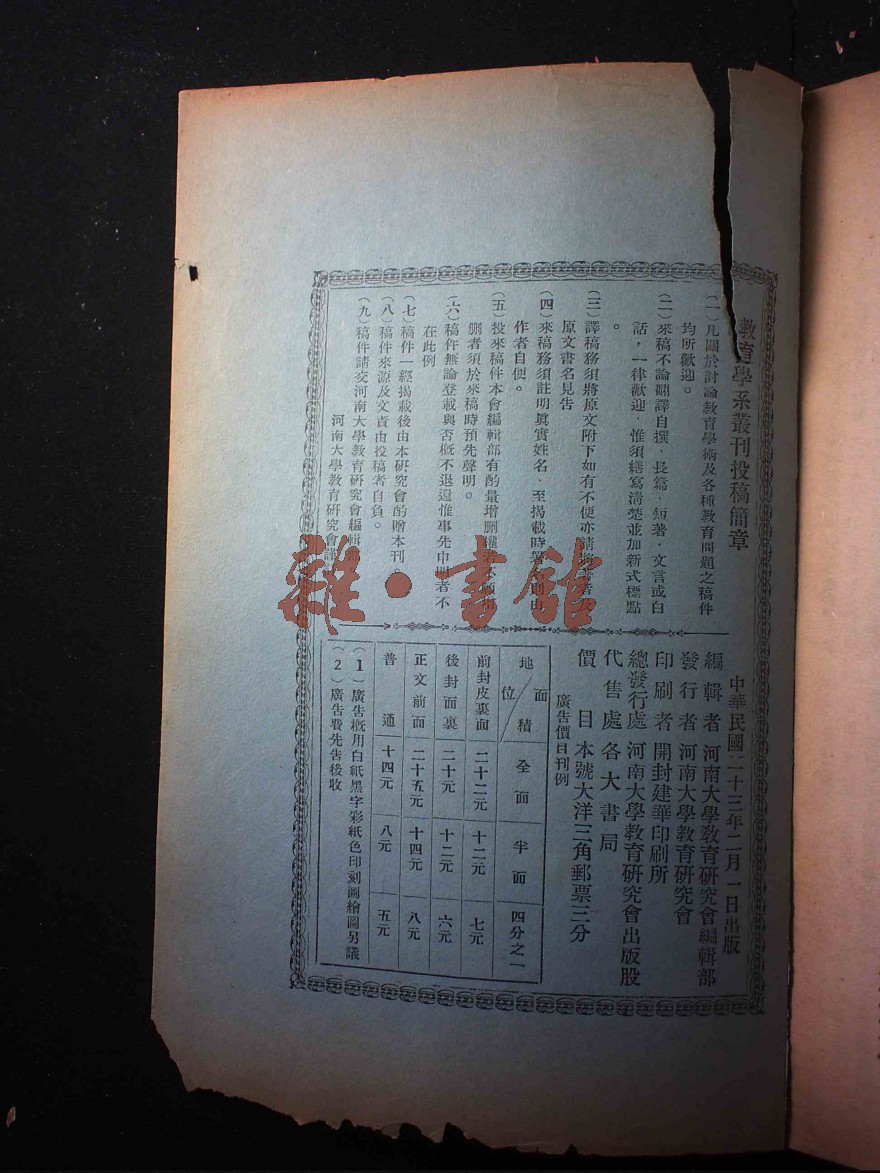 教育學系叢刊投稿簡章
(一)凡關於討論教育學術及各種教育問題之稿件
均所歡迎。
(二)來稿不論翻譯自撰，長篇，短著，文言或白
話，一律歡迎，惟須繕寫淸楚並加新式標點
。
(三)譯稿務須將原文附下如有不便亦請
原文書名見吿
(四)來稿務須註明眞實姓名，至揭載時
作者自便。
(五)投來稿件本會編輯部有酌量增删
删者須於來稿時預先聲明。
(六)稿件無論登載與否槪不退還惟事先申明者不
在此例
(七)稿件一經揭載後由本硏究會酌贈本刊。
(八)稿件來源及文責由投稿者自負。
(九)稿件請交河南大學教育硏究會編輯部
河南大學教育硏究會
中華民國二十三年二月一日出版
編輯者 河南大學教育硏究會編輯部
發行者 河南大學教育硏究會
印刷者 開封建華印刷所
總發行處 河南大學教育硏究會出版股
代售處 各大書局
價目 本號大洋三角郵票三分
廣吿價目刊例
地位 面積 全面 半面 四分之一
前封皮裏面 二十二元 十二元 七元
後封面裏 二十元 十二元 六元
正文前面 二十五元 十四元 八元
普通 十四元 八元 五元
(1)廣吿槪用白紙黑字彩紙色印刻圖繪圖另議
(2)廣吿費先吿後收
雜·書館